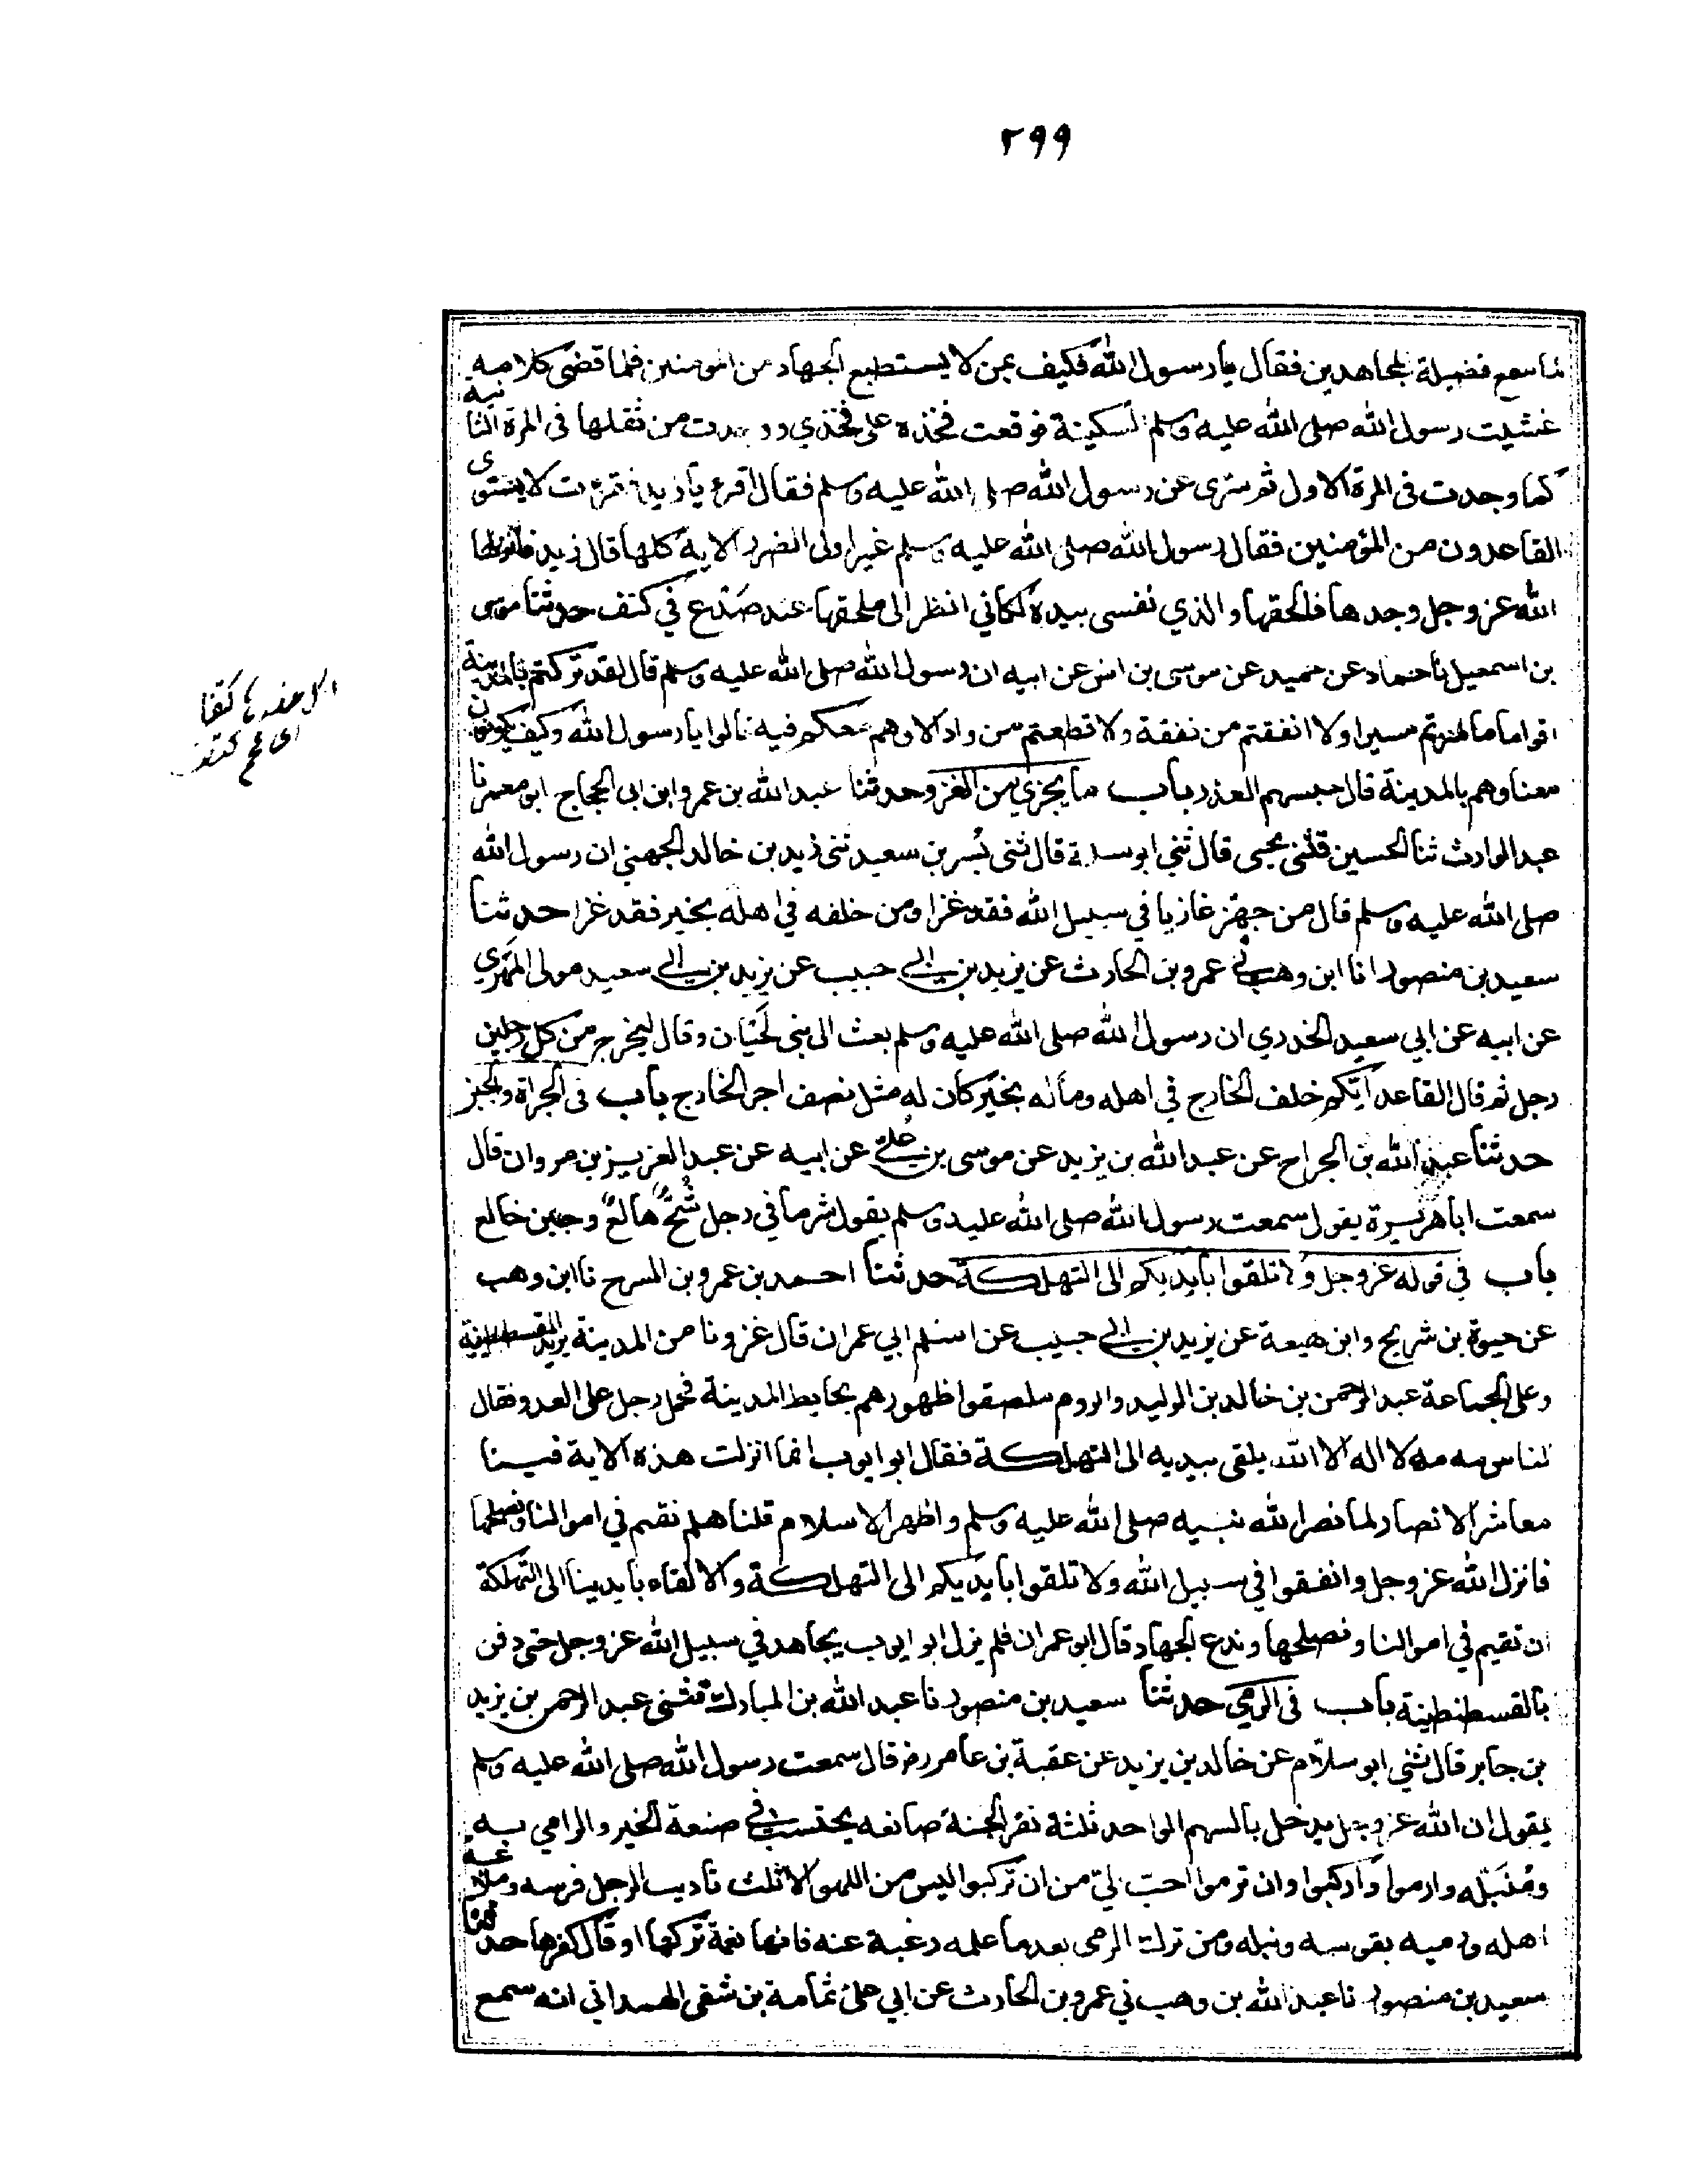 ٢٩٩
لما سمع فضيلة المجاهدين فقال يا رسول الله فكيف بمن لا يستطيع الجهاد من المؤمنين فلما قضى كلامه
غشيت رسول الله صلى الله عليه وسلم السكينة فوقعت فخذه على فخذي ووجدت من ثقلها في المرة الثانية
كما وجدت في المرة الاولى ثم سرى عن رسول الله صلى الله عليه وسلم فقال اقرء يا زيد فقرءت لا يستوى
القاعدون من المؤمنين فقال رسول الله صلى الله عليه وسلم غير اولى الضرر الاية كلها قال زيد فانزلها
الله عز وجل وحدها فالحقتها والذي نفسى بيده لكاني انظر الى ملحقها عند صدع في كتف حدثنا موسى
بن اسمعيل نا حماد عن حميد عن موسى بن انس عن ابيه ان رسول الله صلى الله عليه وسلم قال لقد تركتم بالمدينة
اقواما ما سرتم مسيرا ولا انفقتم من نفقة ولا قطعتم من واد الا وهم معكم فيه قالوا يا رسول الله وكيف يكونون
معنا وهم بالمدينة قال حبسهم العذر باب ما يجزي من الغزو حدثنا عبد الله بن عمرو ابن ابى الحجاج ابو معمر نا
عبد الوارث ثنا الحسين قثنى يحيى قال ثني ابو سلمة قال ثنى بسر بن سعيد ثنى زيد بن خالد الجهني ان رسول الله
صلى الله عليه وسلم قال من جهز غازيا في سبيل الله فقد غزا ومن خلفه في اهله بخير فقد غزا حدثنا
سعيد بن منصور انا ابن وهب نى عمرو بن الحارث عن يزيد بن ابي حبيب عن يزيد بن ابي سعيد مولى المهري
عن ابيه عن ابي سعيد الخدري ان رسول الله صلى الله عليه وسلم بعث الى بنى لحيان وقال ليخرج من كل رجلين
رجل ثم قال القاعد ايكم خلف الخارج في اهله وماله بخير كان له مثل نصف اجر الخارج باب في الجراة والجبن
حدثنا عبد الله بن الجراح عن عبد الله بن يزيد عن موسى بن علي عن ابيه عن عبد العزيز بن مروان قال
سمعت ابا هريرة يقول سمعت رسول الله صلى الله عليه وسلم يقول شر ما في رجل شح هالع وجبن خالع
باب في قوله عز وجل ولا تلقوا بايديكم الى التهلكة حدثنا احمد بن عمرو بن السرح نا ابن وهب
عن حيوة بن شريح وابن لهيعة عن يزيد بن ابي حبيب عن اسلم ابي عمران قال غزونا من المدينة يريد القسطنطينية
وعلى الجماعة عبد الرحمن بن خالد بن الوليد والروم ملصقوا ظهورهم بحايط المدينة فحمل رجل على العدو فقال
الناس مه مه لا اله الا الله يلقى بيديه الى التهلكة فقال ابو ايوب انما انزلت هذه الاية فينا
معاشر الانصار لما نصر الله نبيه صلى الله عليه وسلم واظهر الاسلام قلنا هلم نقيم في اموالنا ونصلحها
فانزل الله عز وجل وانفقوا في سبيل الله ولا تلقوا بايديكم الى التهلكة والالقاء بايدينا الى التهلكة
ان نقيم في اموالنا ونصلحها وندع الجهاد قال ابو عمران فلم يزل ابو ايوب يجاهد في سبيل الله عز وجل حتى دفن
بالقسطنطينة باب في الرمي حدثنا سعيد بن منصور نا عبد الله بن المبارك قثنى عبد الرحمن بن يزيد
بن جابر قال ثني ابو سلام عن خالد بن يزيد عن عقبة بن عامر رضـ قال سمعت رسول الله صلى الله عليه وسلم
يقول ان الله عز وجل يدخل بالسهم الواحد ثلثة نفر الجنة صانعه يحتسب في صنعة الخير والرامي به
ومنبله وارموا واركبوا وان ترموا احب الي من ان تركبوا ليس من اللهو الا ثلث تاديب الرجل فرسه وملاعبة
اهله ورميه بقوسه ونبله ومن ترك الرمى بعد ما علمه رغبة عنه فانها نعمة تركها او قال كفرها حدثنا
سعيد بن منصور نا عبد الله بن وهب نى عمرو بن الحارث عن ابي على ثمامة بن شفى الهمداني انه سمع